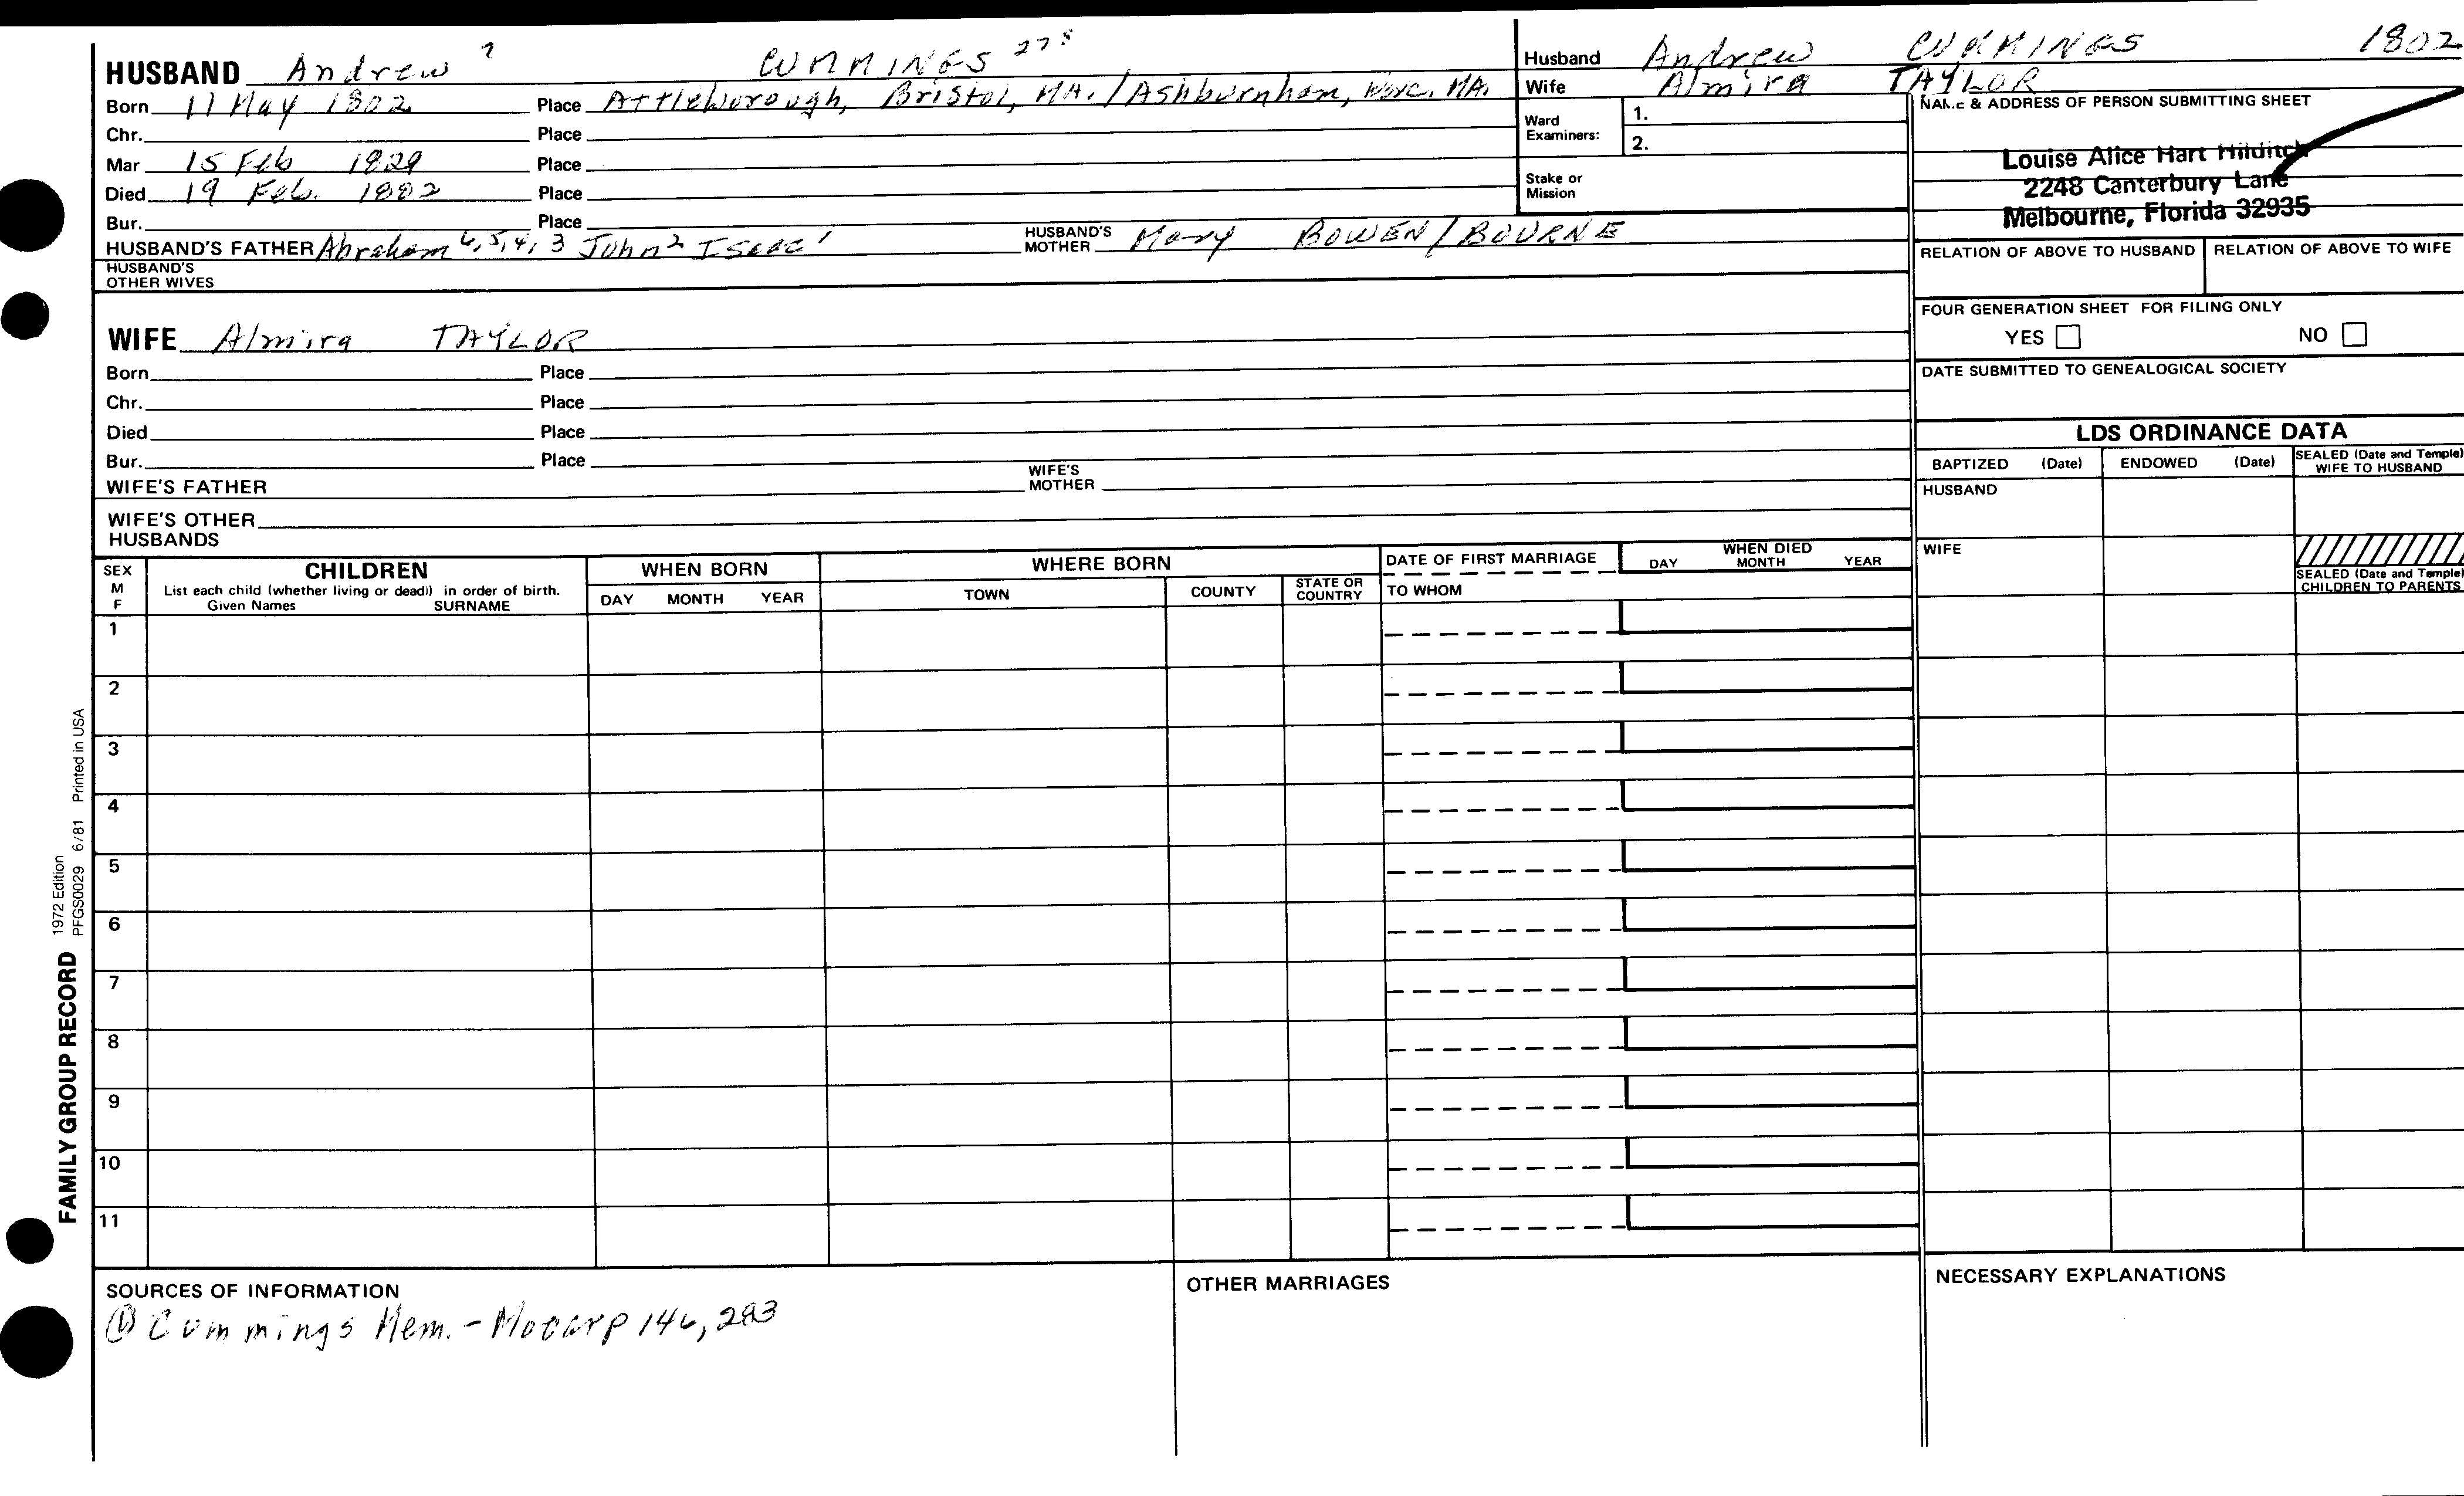 HUSBAND Andrew 7 CUMMINGS 278
Born 11 May 1802 Place Attleborough, Bristol, MA. / Ashburnham, Worc. MA.
Chr. Place
Mar 15 Feb 1829 Place
Died 19 Feb. 1882 Place
Bur. Place
HUSBAND'S FATHER Abraham 6,5,4,3 John2 Isaac1 HUSBAND'S MOTHER Mary BOWEN/BOURNE
HUSBAND'S OTHER WIVES
Husband Andrew CUMMINGS 1802
Wife Almira TAYLOR
Ward Examiners: 1.
2.
Stake or Mission
NAME & ADDRESS OF PERSON SUBMITTING SHEET
Louise Alice Hart Hilditch
2248 Canterbury Lane
Melbourne, Florida 32935
RELATION OF ABOVE TO HUSBAND RELATION OF ABOVE TO WIFE
FOUR GENERATION SHEET FOR FILING ONLY
YES NO
DATE SUBMITTED TO GENEALOGICAL SOCIETY
WIFE Almira TAYLOR
Born Place
Chr. Place
Died Place
Bur. Place
WIFE'S FATHER WIFE'S MOTHER
WIFE'S OTHER HUSBANDS
LDS ORDINANCE DATA
BAPTIZED (Date) ENDOWED (Date) SEALED (Date and Temple) WIFE TO HUSBAND
HUSBAND
WIFE
SEALED (Date and Temple) CHILDREN TO PARENTS
SEX M F CHILDREN WHEN BORN WHERE BORN DATE OF FIRST MARRIAGE WHEN DIED
List each child (whether living or dead) in order of birth.
Given Names SURNAME DAY MONTH YEAR TOWN COUNTY STATE OR COUNTRY TO WHOM DAY MONTH YEAR
1
2
3
4
5
6
7
8
9
10
11
SOURCES OF INFORMATION
(1) Cummings Mem. - Mooar p 146, 283
OTHER MARRIAGES
NECESSARY EXPLANATIONS
FAMILY GROUP RECORD
1972 Edition
PFGS0029 6/81 Printed in USA